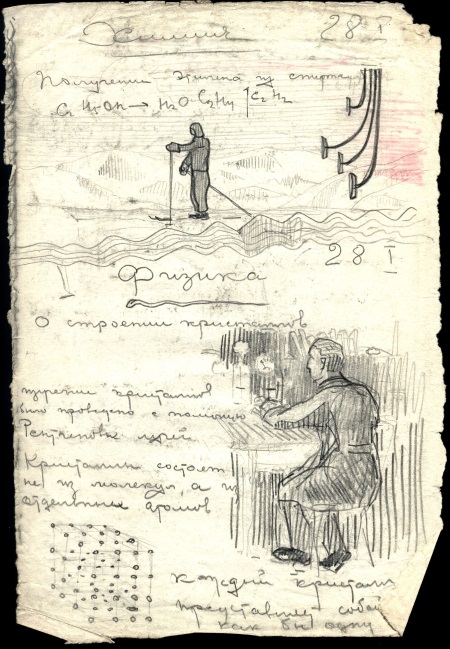 Химия 28 I
Получение этилена из спирта
C₂H₅OH → H₂O C₂H₄ ↑C₂H₂
28 I
Физика
О строении кристаллов
кристаллов
было проведено с помощью
Рентгенов. лучей
Кристаллы состоят
не из молекул, а из
отдельных атомов
каждый кристалл
представляет собой
как бы одну